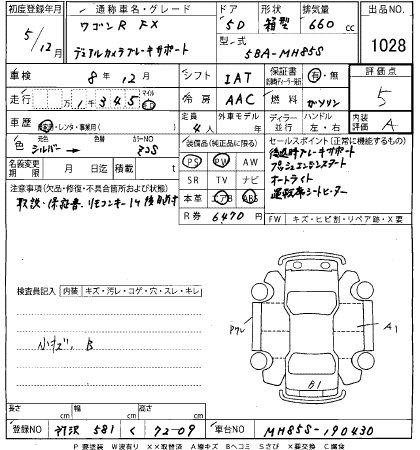 初度登録年月 通称車名・グレード ドア 形状 排気量 出品NO.
5/12月 ワゴンR FX 5D 箱型 660cc 1028
デュアルカメラブレーキサポート 型・式 5BA-MH85S
車検 8年12月 シフト IAT 保証書 有・無 評価点
走行 1千345 マイル km 冷房 AAC 燃料 ガソリン 5
車歴 自家用・レンタ・事業用 定員 4人 外車モデル 年 ディーラー・並行 ハンドル 左・右 内装評価 A
色 元色 シルバー 色替 カラーNO Z2S 装備品(純正品に限る) セールスポイント(正常に機能するもの)
名義変更期限 月 日迄 積載 t PS PW AW 後退時ブレーキサポート
注意事項(欠品・修復・不具合箇所および状態) SR TV ナビ プッシュエンジンスタート
取説・保証書・リモコンキー1ケ後日付 本革 エアB ABS オートライト
運転席シートヒーター
R券 6470円 FW キズ・ヒビ割・リペア跡・X要
検査員記入 内装 キズ・汚レ・コゲ・穴・スレ・キレ
小キズ、B
Pワレ A1
B1
長さ cm 幅 cm 高さ cm
登録NO 所沢 581 く 72-09 車台NO MH85S-190430
P要塗装 W波有り XX取替済 A線キズ Bヘコミ Sさび X要交換 C腐食